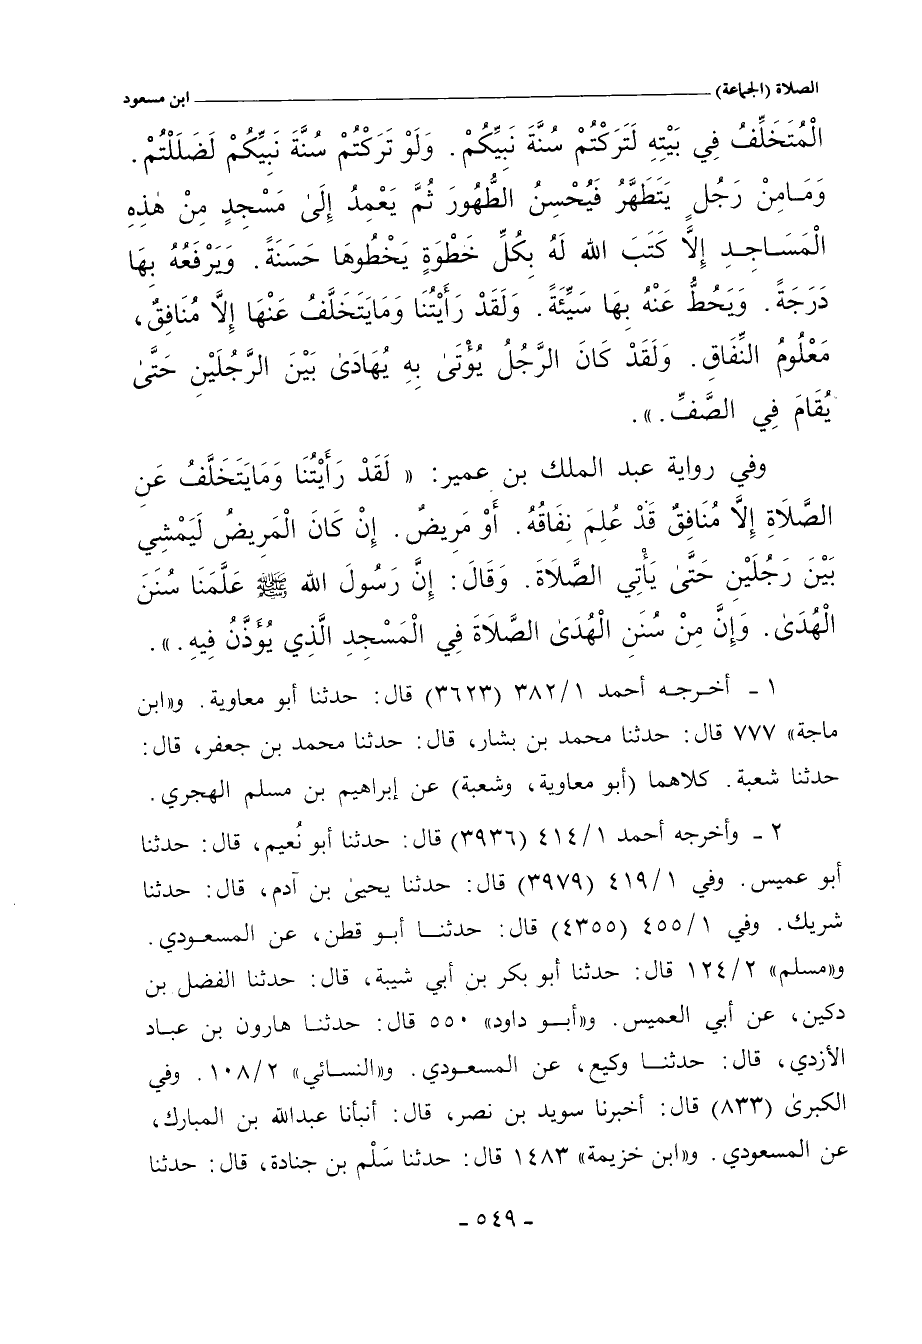 الصلاة (الجماعة) ــــــــــــــــ ابن مسعود
الْمُتَخَلِّفُ فِي بَيْتِهِ لَتَرَكْتُمْ سُنَّةَ نَبِيِّكُمْ. وَلَوْ تَرَكْتُمْ سُنَّةَ نَبِيِّكُمْ لَضَلَلْتُمْ.
وَمَامِنْ رَجُلٍ يَتَطَهَّرُ فَيُحْسِنُ الطُّهُورَ ثُمَّ يَعْمِدُ إِلَىٰ مَسْجِدٍ مِنْ هٰذِهِ
الْمَسَاجِدِ إِلَّا كَتَبَ الله لَهُ بِكُلِّ خَطْوَةٍ يَخْطُوهَا حَسَنَةً. وَيَرْفَعُهُ بِهَا
دَرَجَةً. وَيَحُطُّ عَنْهُ بِهَا سَيِّئَةً. وَلَقَدْ رَأَيْتُنَا وَمَايَتَخَلَّفُ عَنْهَا إِلَّا مُنَافِقٌ،
مَعْلُومُ النِّفَاقِ. وَلَقَدْ كَانَ الرَّجُلُ يُؤْتَىٰ بِهِ يُهَادَىٰ بَيْنَ الرَّجُلَيْنِ حَتَّىٰ
يُقَامَ فِي الصَّفِّ.».
وفي رواية عبد الملك بن عمير: « لَقَدْ رَأَيْتُنَا وَمَايَتَخَلَّفُ عَنِ
الصَّلَاةِ إِلَّا مُنَافِقٌ قَدْ عُلِمَ نِفَاقُهُ. أَوْ مَرِيضٌ. إِنْ كَانَ الْمَرِيضُ لَيَمْشِي
بَيْنَ رَجُلَيْنِ حَتَّىٰ يَأْتِي الصَّلَاةَ. وَقَالَ: إِنَّ رَسُولَ الله ﷺ عَلَّمَنَا سُنَنَ
الْهُدَىٰ. وَإِنَّ مِنْ سُنَنِ الْهُدَىٰ الصَّلَاةَ فِي الْمَسْجِدِ الَّذِي يُؤَذَّنُ فِيهِ.».
١ ـ أخرجه أحمد ٣٨٢/١ (٣٦٢٣) قال: حدثنا أبو معاوية. و«ابن
ماجة» ٧٧٧ قال: حدثنا محمد بن بشار، قال: حدثنا محمد بن جعفر، قال:
حدثنا شعبة. كلاهما (أبو معاوية، وشعبة) عن إبراهيم بن مسلم الهجري.
٢ ـ وأخرجه أحمد ٤١٤/١ (٣٩٣٦) قال: حدثنا أبو نُعيم، قال: حدثنا
أبو عميس. وفي ٤١٩/١ (٣٩٧٩) قال: حدثنا يحيىٰ بن آدم، قال: حدثنا
شريك. وفي ٤٥٥/١ (٤٣٥٥) قال: حدثنا أبو قطن، عن المسعودي.
و«مسلم» ١٢٤/٢ قال: حدثنا أبو بكر بن أبي شيبة، قال: حدثنا الفضل بن
دكين، عن أبي العميس. و«أبو داود» ٥٥٠ قال: حدثنا هارون بن عباد
الأزدي، قال: حدثنا وكيع، عن المسعودي. و«النسائي» ١٠٨/٢. وفي
الكبرىٰ (٨٣٣) قال: أخبرنا سويد بن نصر، قال: أنبأنا عبدالله بن المبارك،
عن المسعودي. و«ابن خزيمة» ١٤٨٣ قال: حدثنا سَلْم بن جنادة، قال: حدثنا
ـ ٥٤٩ ـ